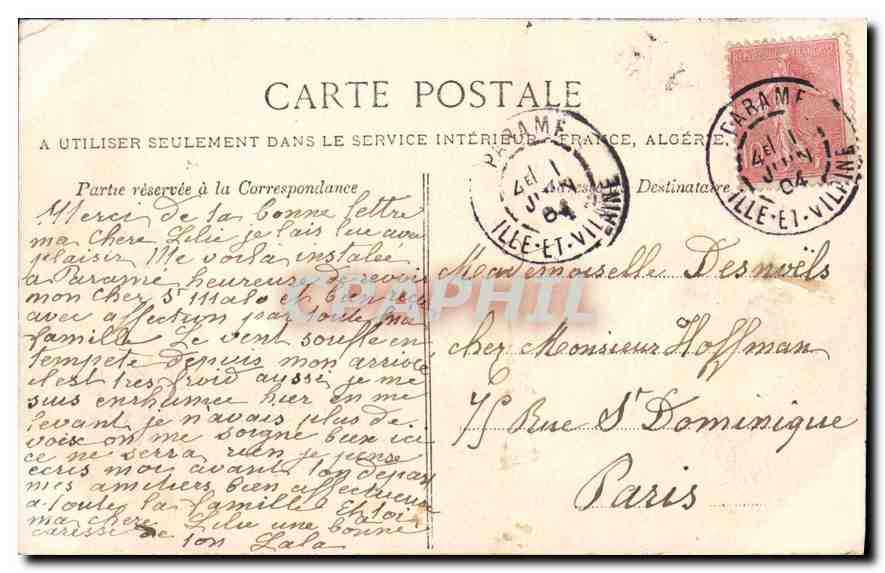 CARTE POSTALE
A UTILISER SEULEMENT DANS LE SERVICE INTÉRIEUR FRANCE, ALGÉRIE,
Partie réservée à la Correspondance
Destinataire
REPUBLIQUE FRANÇAISE
PARAMÉ
4E 1
JUIN
04
ILLE-ET-VILAINE
PARAMÉ
4E 1
JUIN
04
ILLE-ET-VILAINE
Merci de ta bonne lettre
ma chere Lilie je lais lue avec
plaisir Me voila instalée
a Paramé heureuse de revoir
mon cher St Malo et bien reçu
avec affection par toute ma
famille Le vent souffle en
tempete depuis mon arrivée
il est tres froid aussi je me
suis enrhumée hier en me
levant je n'avais plus de
voix on me soigne bien ici
ce ne serra rien je pense
ecris moi avant ton depart
mes amitiers bien affectueux
a toute la famille Et a toi
ma chere Lilie une bonne
caresse de
ton Lala
Mademoiselle Desnoëls
chez Monsieur Hoffman
75 Rue St Dominique
Paris
CPAPHIL